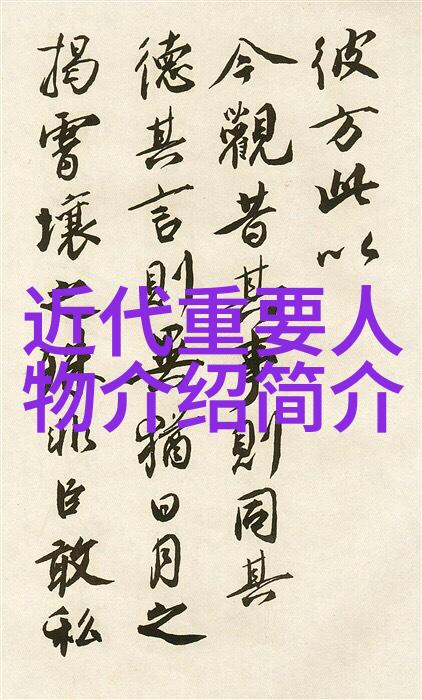 彼方此以
今觀昔其事則同其
德其言則異猶日月之
揭霄壤之非臣敢私
近代重要人
物介绍简介